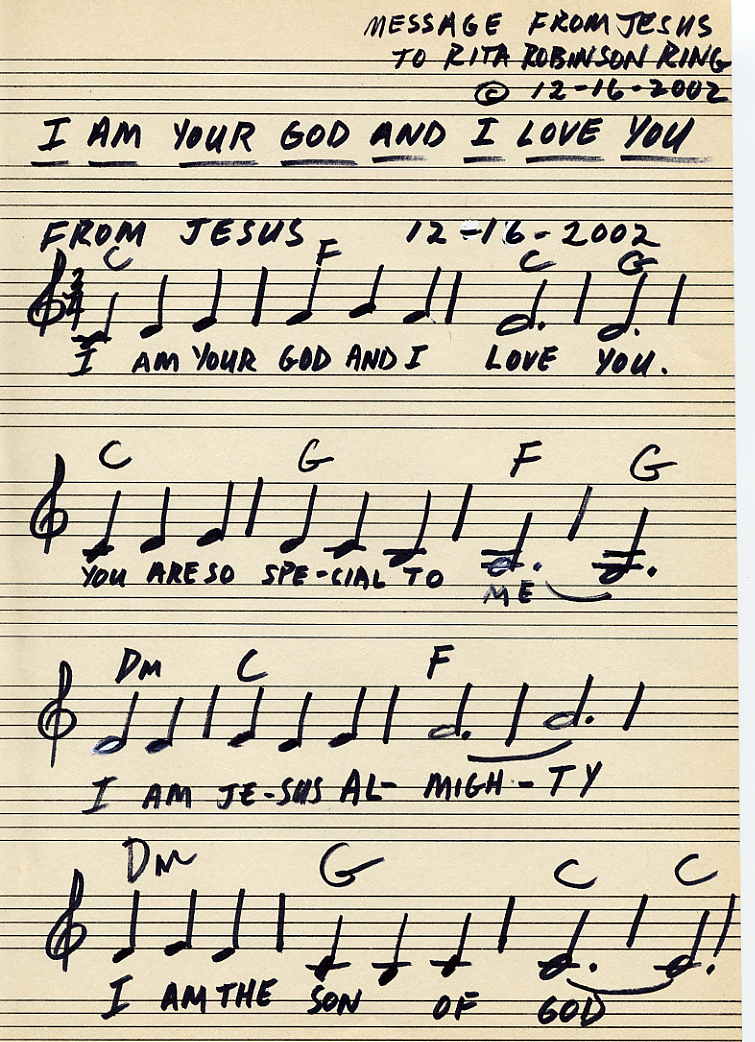 MESSAGE FROM JESUS
TO RITA ROBINSON RING
© 12-16-2002
I AM YOUR GOD AND I LOVE YOU
FROM JESUS 12-16-2002
C F C G
3
4
I AM YOUR GOD AND I LOVE YOU.
C G F G
YOU ARE SO SPE-CIAL TO ME
Dm C F
I AM JE-SUS AL-MIGH-TY
Dm G C C
I AM THE SON OF GOD